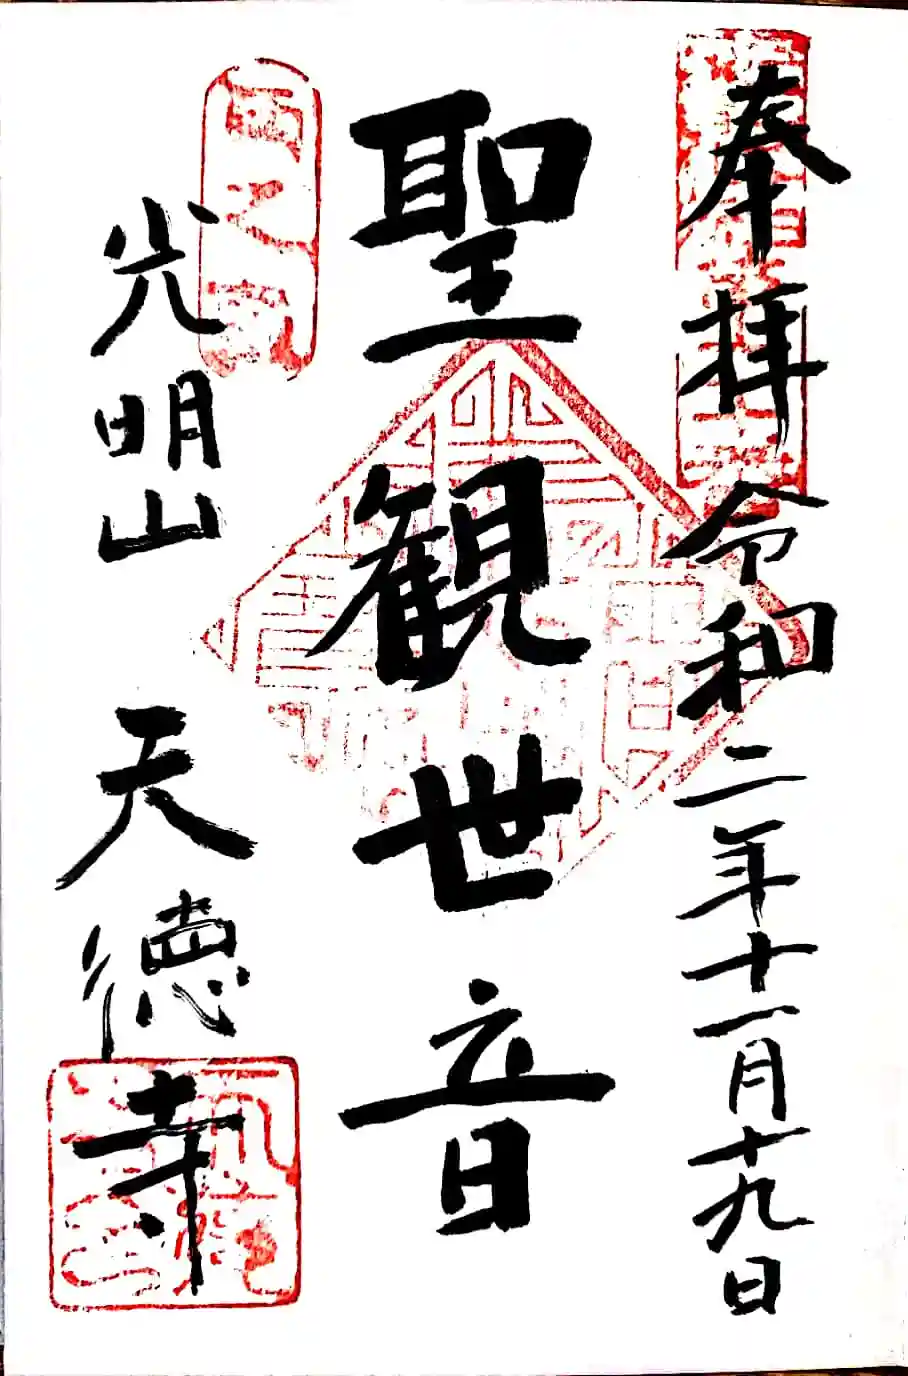 奉拝 令和二年十一月十九日
聖観世音
光明山 天徳寺